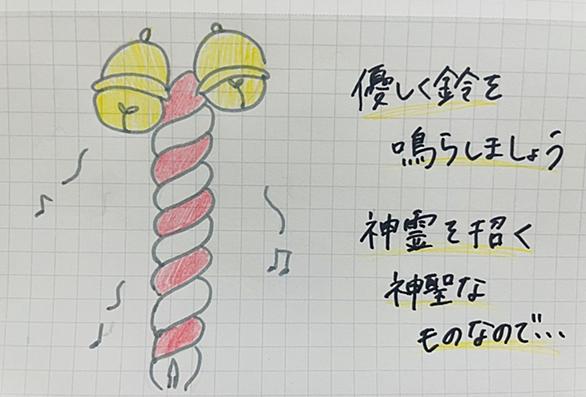 優しく鈴を
鳴らしましょう
神霊を招く
神聖な
ものなので…